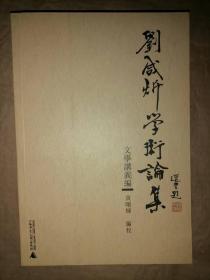 劉咸炘学術論集
文學講義編
黄曙輝 編校